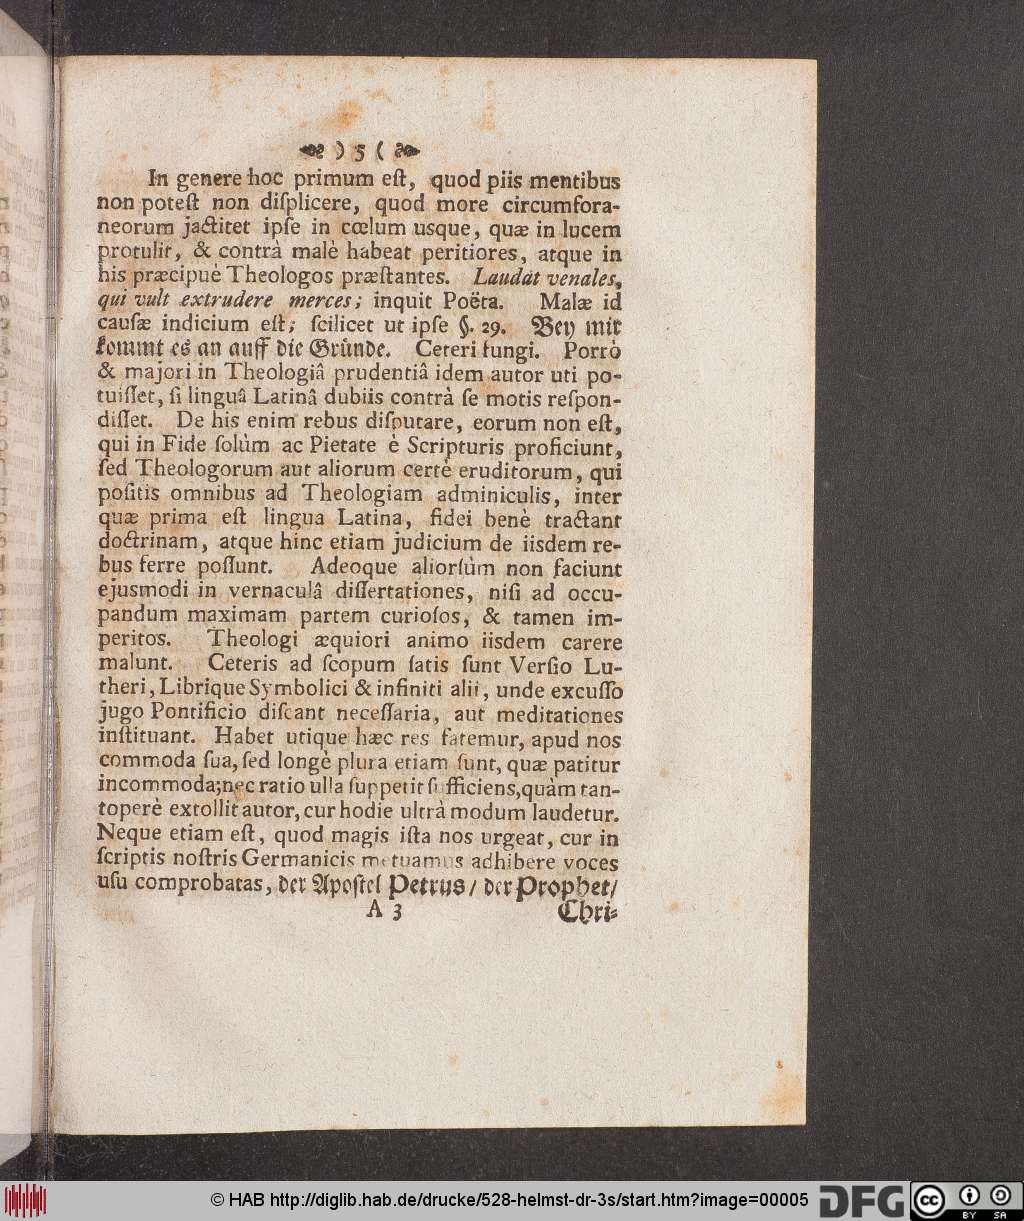 ) 5 (
In genere hoc primum eſt, quod piis mentibus
non poteſt non diſplicere, quod more circumfora-
neorum jactitet ipſe in cœlum usque, quæ in lucem
protulit, & contrà malè habeat peritiores, atque in
his præcipuè Theologos præſtantes. Laudat venales,
qui vult extrudere merces; inquit Poëta. Malæ id
cauſæ indicium eſt; ſcilicet ut ipſe §. 29. Bey mir
kommt es an auff die Gründe. Ceteri fungi. Porrò
& majori in Theologiâ prudentiâ idem autor uti po-
tuiſſet, ſi linguâ Latinâ dubiis contrà ſe motis reſpon-
diſſet. De his enim rebus diſputare, eorum non eſt,
qui in Fide ſolùm ac Pietate è Scripturis proficiunt,
ſed Theologorum aut aliorum certè eruditorum, qui
poſitis omnibus ad Theologiam adminiculis, inter
quæ prima eſt lingua Latina, fidei benè tractant
doctrinam, atque hinc etiam judicium de iisdem re-
bus ferre poſſunt. Adeoque aliorſùm non faciunt
ejusmodi in vernaculâ diſſertationes, niſi ad occu-
pandum maximam partem curioſos, & tamen im-
peritos. Theologi æquiori animo iisdem carere
malunt. Ceteris ad ſcopum ſatis ſunt Verſio Lu-
theri, Librique Symbolici & infiniti alii, unde excuſſo
jugo Pontificio diſcant neceſſaria, aut meditationes
inſtituant. Habet utique hæc res fatemur, apud nos
commoda ſua, ſed longè plura etiam ſunt, quæ patitur
incommoda; nec ratio ulla ſuppetit ſufficiens, quàm tan-
toperè extollit autor, cur hodie ultrà modum laudetur.
Neque etiam eſt, quod magis iſta nos urgeat, cur in
ſcriptis noſtris Germanicis metuamus adhibere voces
uſu comprobatas, der Apoſtel Petrus/ der Prophet/
A 3 Chri-
© HAB http://diglib.hab.de/drucke/528-helmst-dr-3s/start.htm?image=00005 DFG cc BY SA